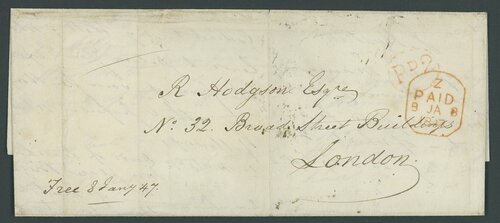 R Hodgson Esqre
No. 32. Broad Street Buildings
London
Free 8 Jany 47.
Z
PAID
8 JA 8